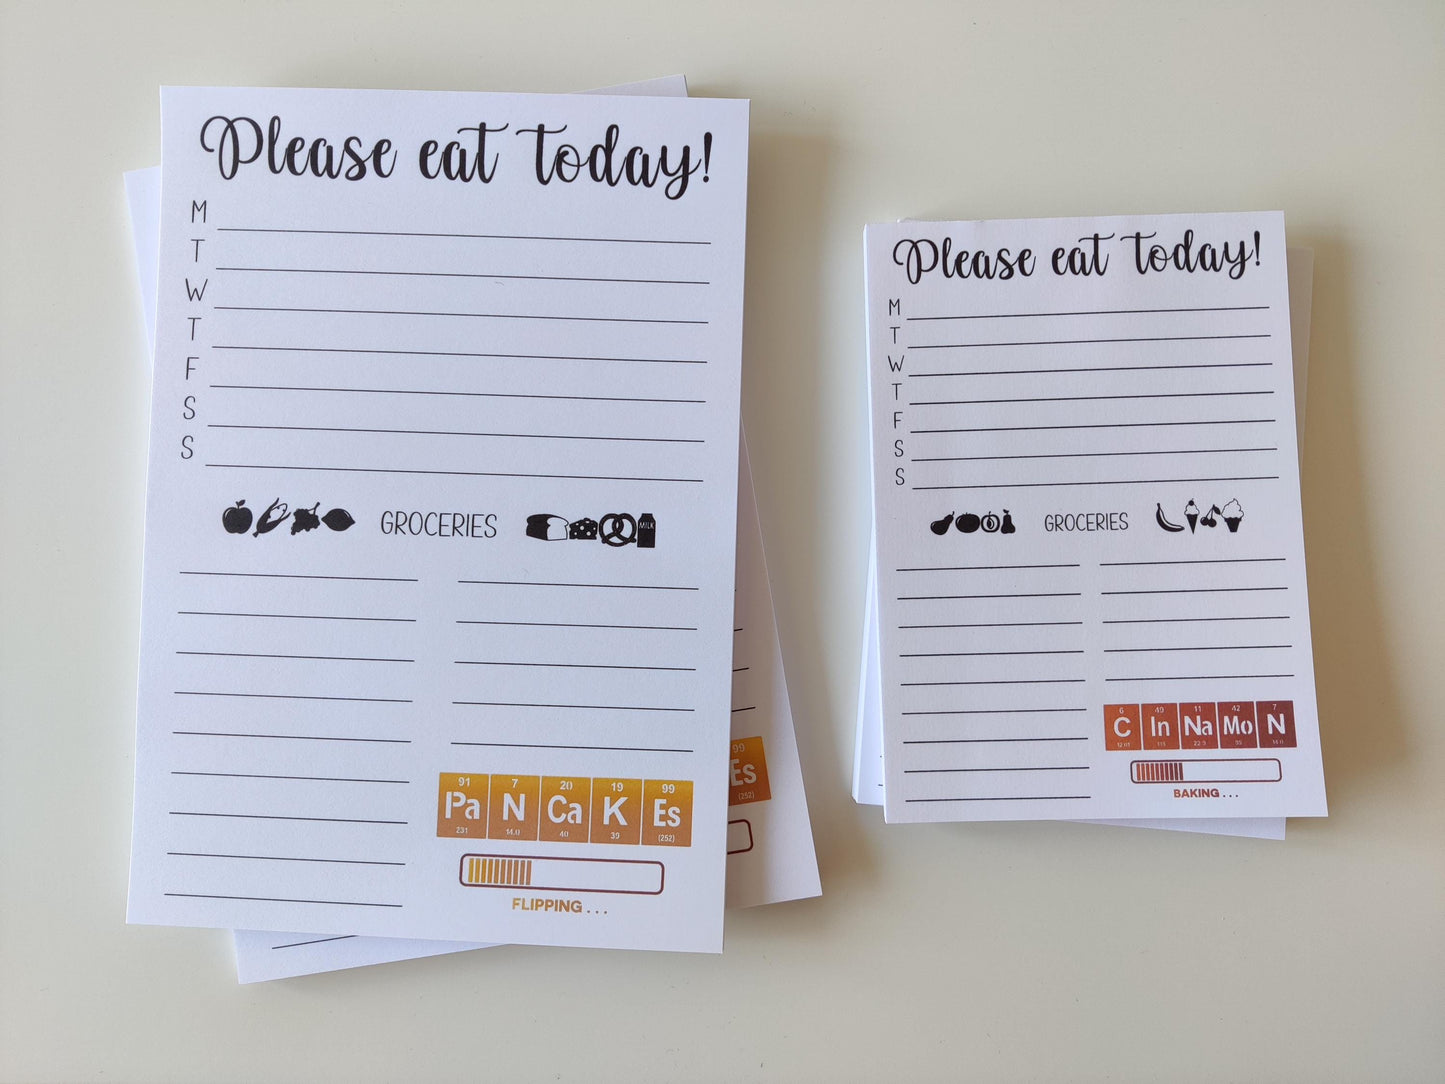 Please eat today!
M
T
W
T
F
S
S
GROCERIES
MILK
91 7 20 19 99
Pa N Ca K Es
231 14.0 40 39 (252)
FLIPPING . . .
99
Es
(252)
Please eat today!
M
T
W
T
F
S
S
GROCERIES
6 49 11 42 7
C In Na Mo N
12.01 115 22.9 95 14.0
BAKING . . .